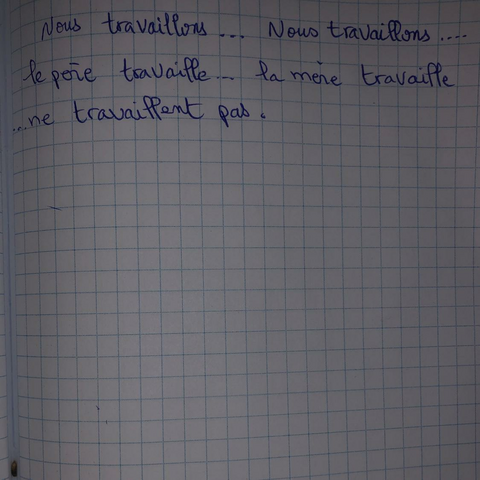 Nous travaillons... Nous travaillons....
le père travaille... la mère travaille
...ne travaillent pas.